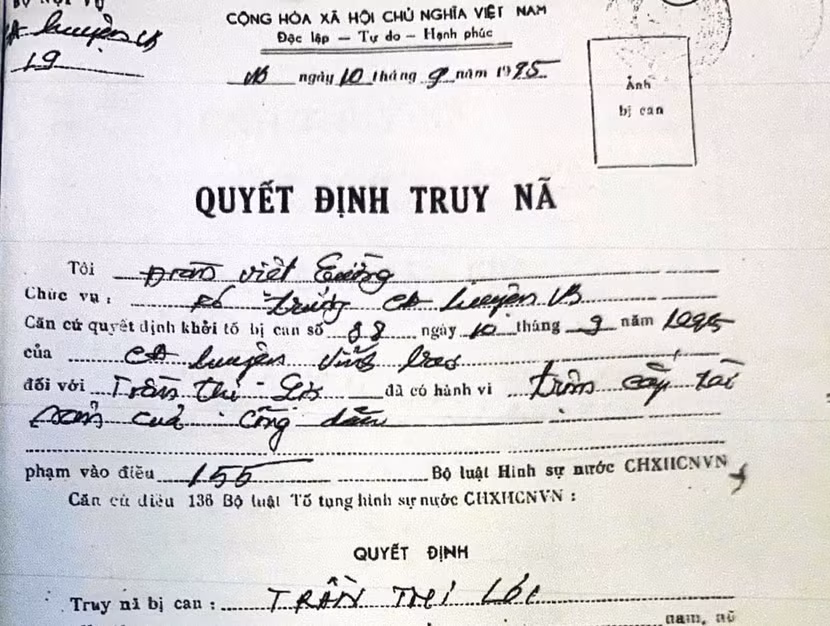 BỘ NỘI VỤ
CA huyện VB
19
CỘNG HÒA XÃ HỘI CHỦ NGHĨA VIỆT NAM
Độc lập — Tự do — Hạnh phúc
VB ngày 10 tháng 9 năm 1995
Ảnh
bị can
QUYẾT ĐỊNH TRUY NÃ
Tôi Trần Việt Cường
Chức vụ : trưởng CA huyện VB
Căn cứ quyết định khởi tố bị can số 88 ngày 10 tháng 9 năm 1995
của CA huyện Vĩnh Bảo
đối với Trần Thị đã có hành vi trộm cắp tài
sản của công dân
phạm vào điều 155 Bộ luật Hình sự nước CHXHCNVN
Căn cứ điều 136 Bộ luật Tố tụng hình sự nước CHXHCNVN :
QUYẾT ĐỊNH
Truy nã bị can : TRẦN THỊ LÓC
nam, nữ